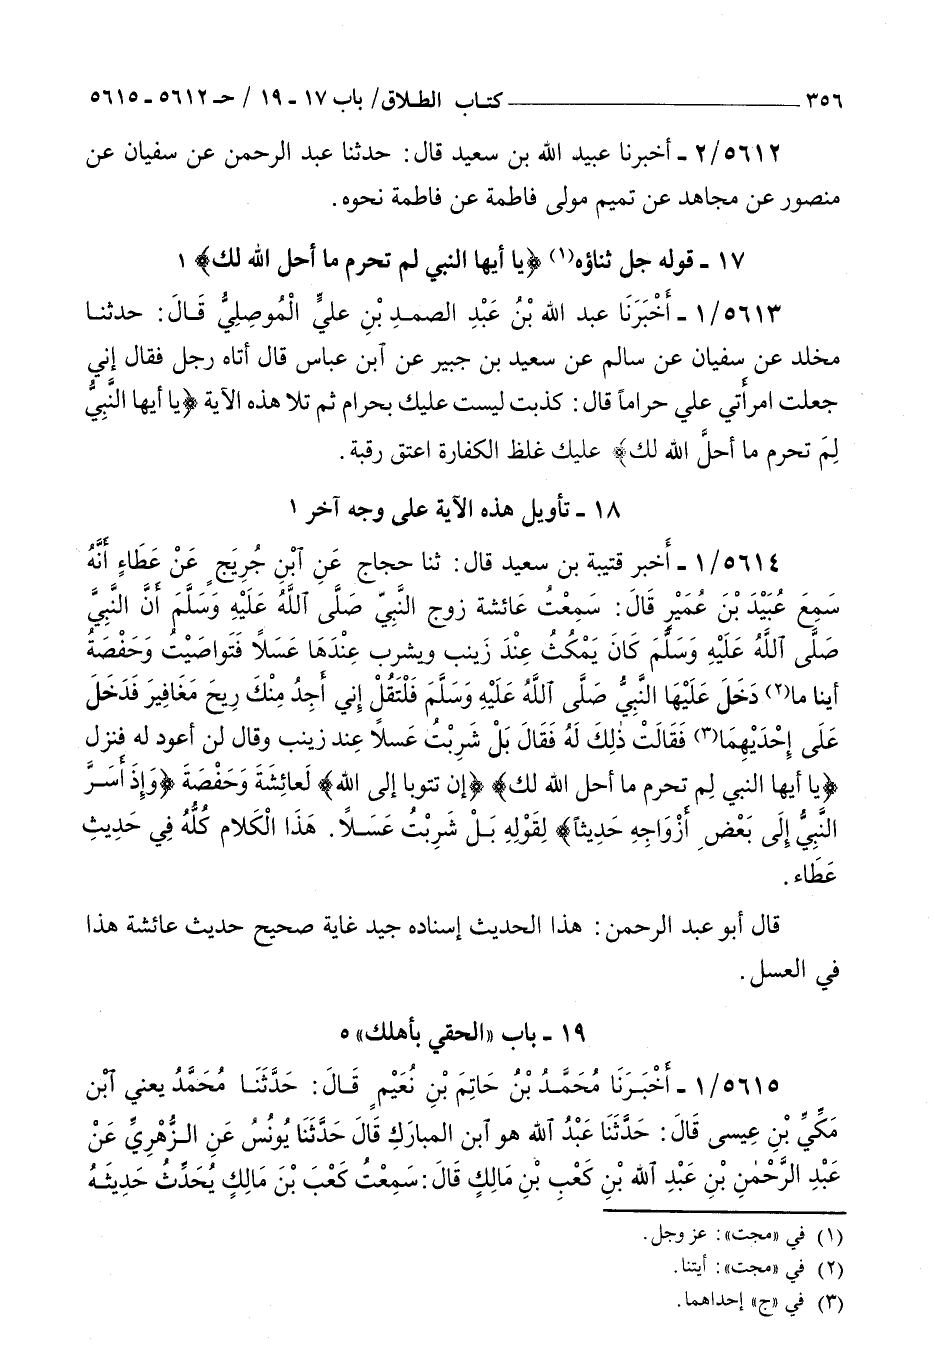 ٣٥٦ ــــــــــــــــــــ كتاب الطلاق/ باب ١٧ - ١٩ / حـ ٥٦١٢ - ٥٦١٥
٢/٥٦١٢ - أخبرنا عبيد الله بن سعيد قال: حدثنا عبد الرحمن عن سفيان عن
منصور عن مجاهد عن تميم مولى فاطمة عن فاطمة نحوه.
١٧ - قوله جل ثناؤه(١) ﴿يا أيها النبي لم تحرم ما أحل الله لك﴾ ١
١/٥٦١٣ - أَخْبَرَنَا عبد الله بْنُ عَبْدِ الصمدِ بْنِ عليٍّ الْمُوصِلِيُّ قَالَ: حدثنا
مخلد عن سفيان عن سالم عن سعيد بن جبير عن ٱبن عباس قال أتاه رجل فقال إني
جعلت امرأتي علي حراماً قال: كذبت ليست عليك بحرام ثم تلا هذه الآية ﴿يا أيها النَّبِيُّ
لِمَ تحرم ما أحلَّ الله لك﴾ عليك غلظ الكفارة اعتق رقبة.
١٨ - تأويل هذه الآية على وجه آخر ١
١/٥٦١٤ - أَخبر قتيبة بن سعيد قال: ثنا حجاج عَنِ ٱبْنِ جُرِيَجٍ عَنْ عَطَاءٍ أَنَّهُ
سَمِعَ عُبَيْدَ بْنَ عُمَيْرٍ قَالَ: سَمِعْتُ عَائشة زوج النَّبيّ صَلَّى اللَّهُ عَلَيْهِ وَسَلَّمَ أَنَّ النَّبِيَّ
صَلَّى ٱللَّهُ عَلَيْهِ وَسَلَّمَ كَانَ يَمْكُثُ عِنْدَ زينب ويشرب عِنْدَهَا عَسَلًا فَتَواصَيْتُ وَحَفْصَةُ
أينا ما(٢) دَخَلَ عَلَيْهَا النَّبِيُّ صَلَّى ٱللَّهُ عَلَيْهِ وَسَلَّمَ فَلْتَقُلْ إني أَجِدُ مِنْكَ رِيحَ مَغَافِيرَ فَدَخَلَ
عَلَى إِحْدَيْهِمَا(٣) فَقَالَتْ ذٰلِكَ لَهُ فَقَالَ بَلْ شَرِبْتُ عَسلًا عِند زينب وقال لن أعود له فنزل
﴿يا أيها النبي لِم تحرم ما أحل الله لك﴾ ﴿إن تتوبا إلى الله﴾ لَعائِشَةَ وَحَفْصَةَ ﴿وَإِذَ أَسَرَّ
النَّبِيُّ إِلَى بَعْضِ أَزْوَاجِهِ حَدِيثاً﴾ لِقَوْلِهِ بَلْ شَرِبْتُ عَسَلًا. هَذَا الْكَلام كُلُّهُ فِي حَدِيثِ
عَطَاء.
قال أبو عبد الرحمن: هذا الحديث إسناده جيد غاية صحيح حديث عائشة هذا
في العسل.
١٩ - باب «الحقي بأهلك» ٥
١/٥٦١٥ - أَخْبَرَنَا مُحَمَّدُ بْنُ حَاتِمَ بْنِ نُعَيْمٍ قَالَ: حَدَّثَنَا مُحَمَّدُ يعني ٱبْن
مَكِّيِّ بْنِ عِيسى قَالَ: حَدَّثَنَا عَبْدُ ٱلله هو ٱبن المباركِ قَالَ حَدَّثَنَا يُونُسُ عَنِ الزُّهْرِيِّ عَنْ
عَبْدِ الرَّحْمٰنِ بْنِ عَبْدِ ٱلله بْنِ كَعْبِ بْنِ مَالِكٍ قَالَ: سَمِعْتُ كَعْبَ بْنَ مَالِكٍ يُحَدِّثُ حَدِيثَهُ
(١) في «مجت»: عز وجل.
(٢) في «مجت»: أيتنا.
(٣) في «ج» إحداهما.